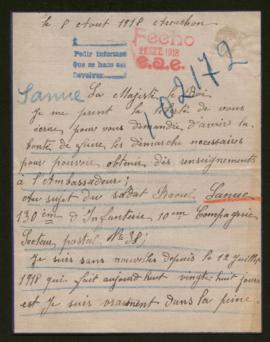 le 8 Aout 1918 Arcachon
Pedir informes
que se haga así
Devolver
Fecho
e.a.e.
102172
Sanue La Majesté le Roi
Je me prend la liberté de vous
écrire pour vous demandé d'avoir la
bonté de faire les démarche necessaires
pour pouvoir obtenir des renseignements
à l'Ambassadeur;
Au sujet du soldat Raoul Sanue
130 em d'Infanterie 10 em Compagnie
Secteur postal No 38;
Je suis sans nouvelles depuis le 12 Juillet
1918 qui fait aujourd'huit vingt-huit jours
est Je suis vraiment dans la peine.